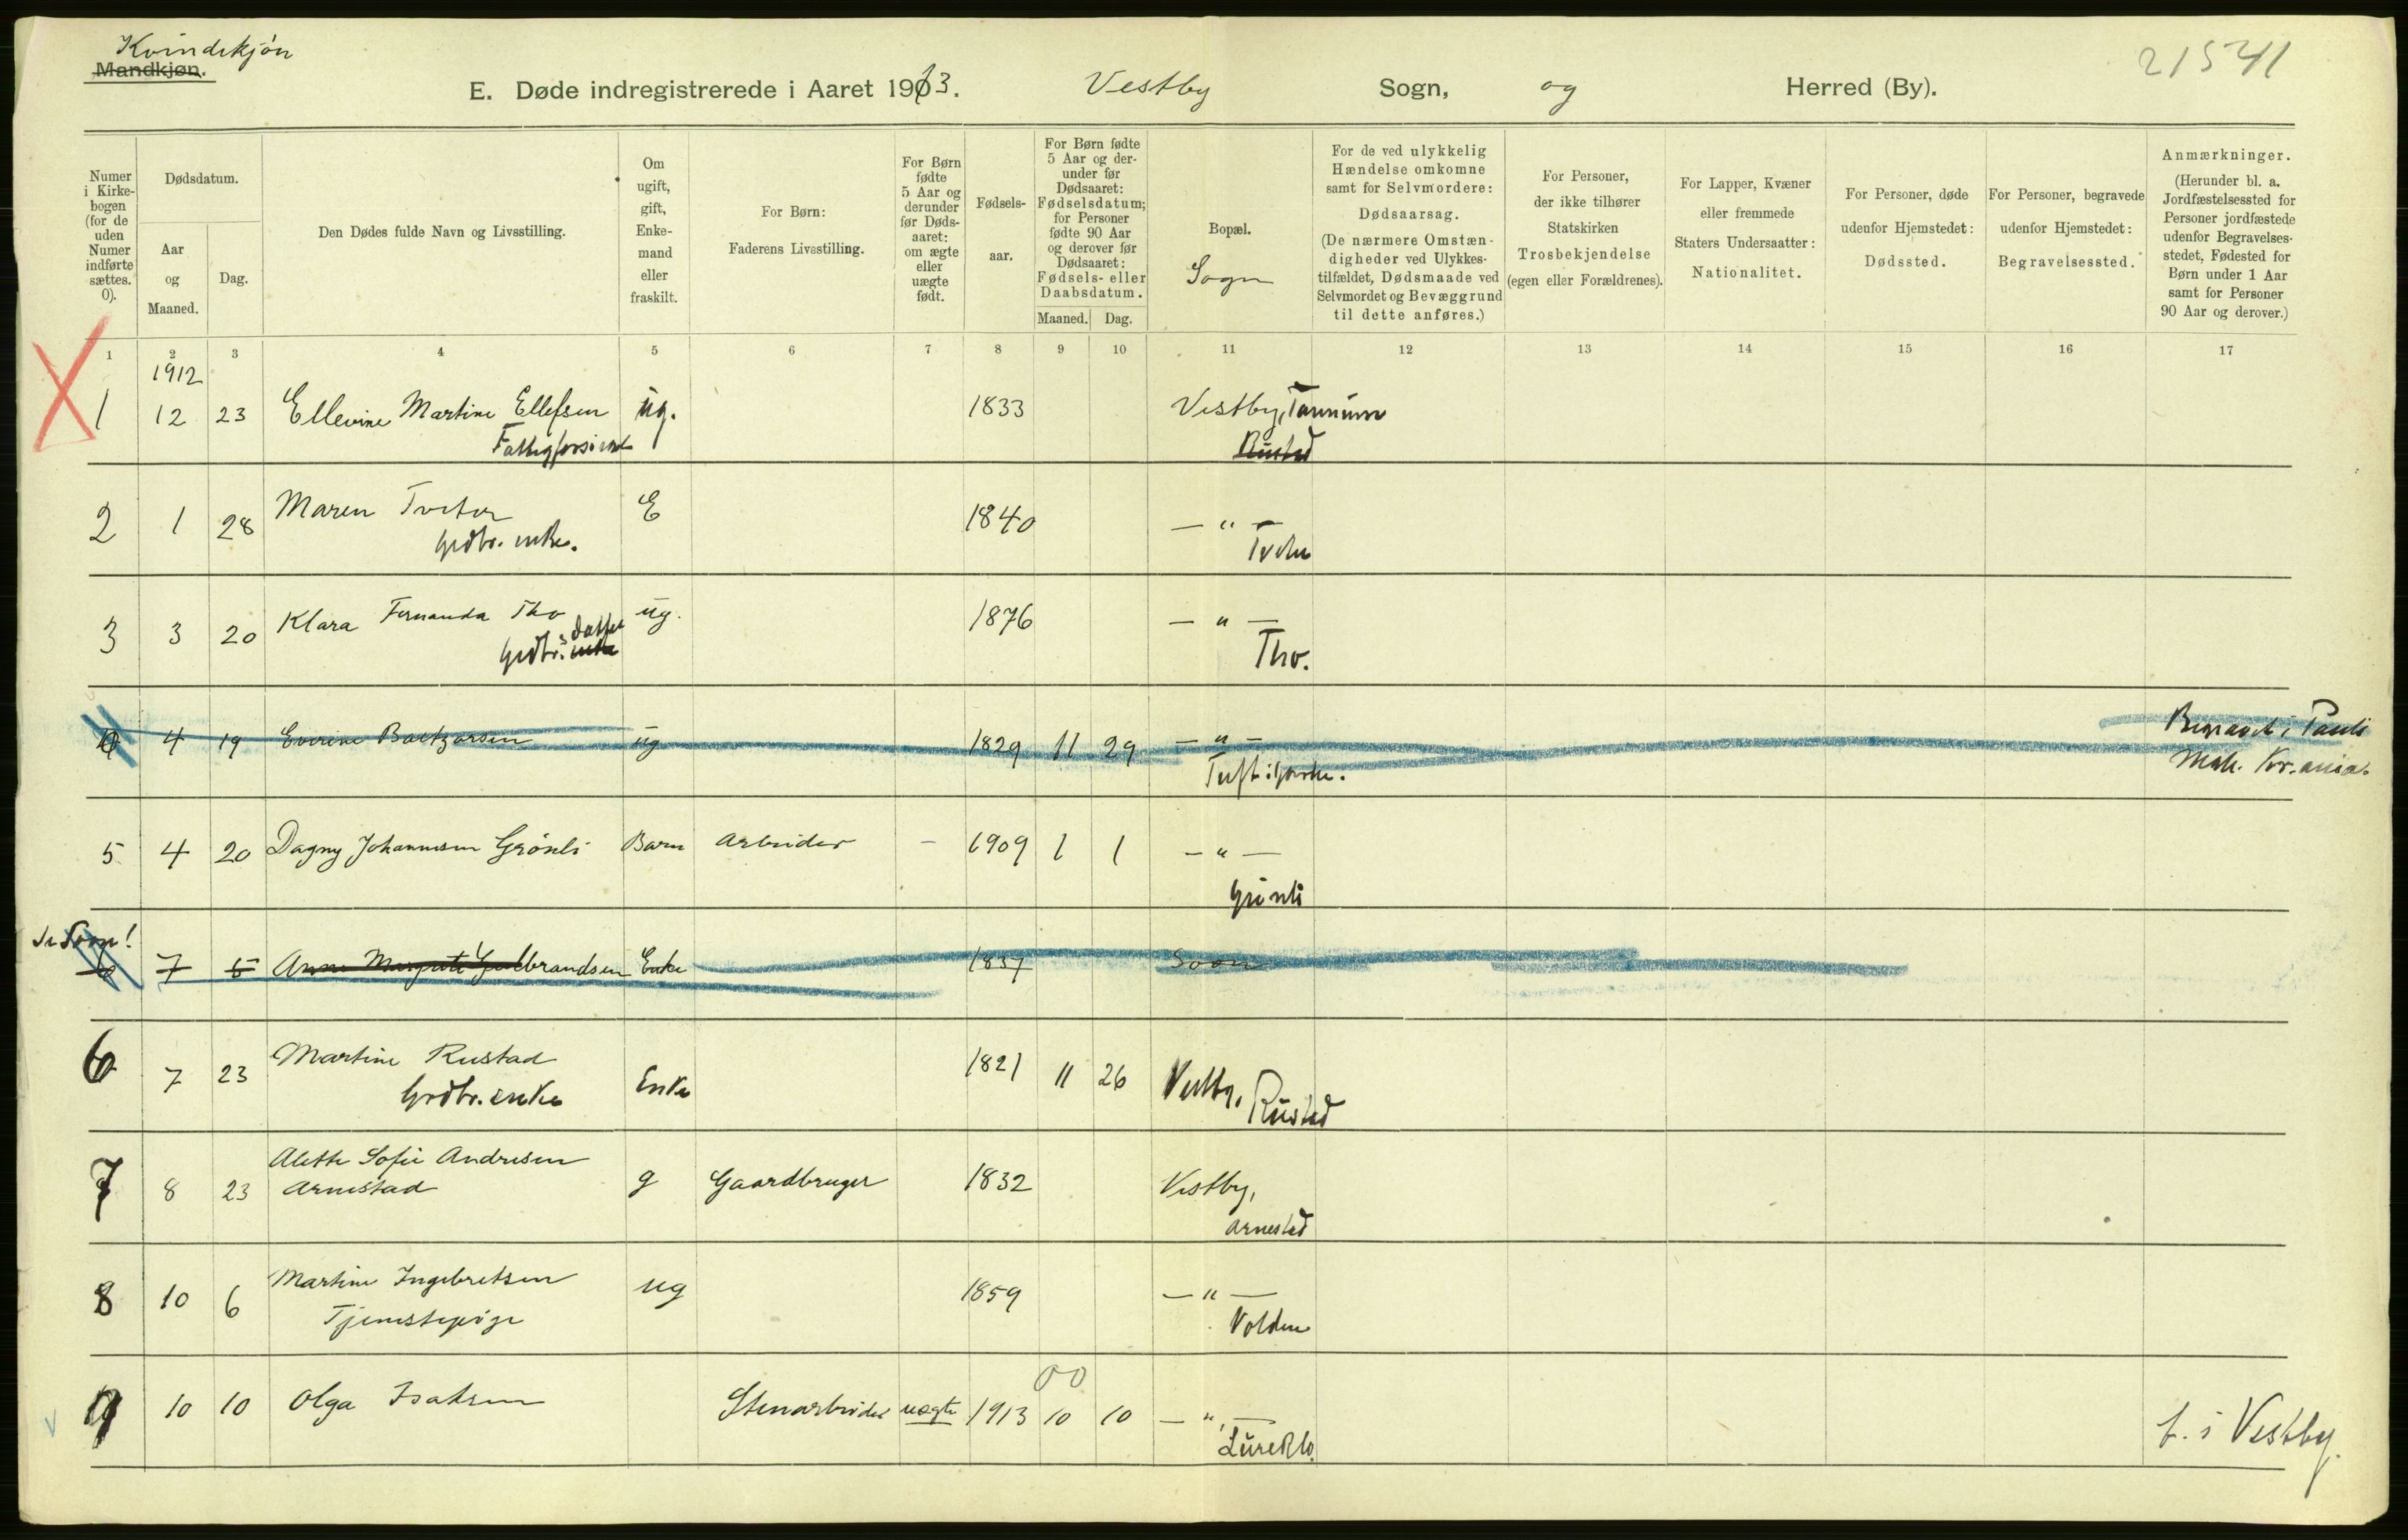 Kvindekjøn
Mandkjøn.
21541
E. Døde indregistrerede i Aaret 1913. Vestby Sogn, og Herred (By).
Numer i Kirkebogen (for de uden Numer indførte sættes. 0).
Dødsdatum.
Aar og Maaned.
Dag.
Den Dødes fulde Navn og Livsstilling.
Om ugift, gift, Enkemand eller fraskilt.
For Børn:
Faderens Livsstilling.
For Børn fødte 5 Aar og derunder før Dødsaaret: om ægte eller uægte født.
Fødselsaar.
For Børn fødte 5 Aar og derunder før Dødsaaret: Fødselsdatum; for Personer fødte 90 Aar og derover før Dødsaaret: Fødsels- eller Daabsdatum.
Maaned. Dag.
Bopæl.
Sogn
For de ved ulykkelig Hændelse omkomne samt for Selvmordere:
Dødsaarsag.
(De nærmere Omstændigheder ved Ulykkestilfældet, Dødsmaade ved Selvmordet og Bevæggrund til dette anføres.)
For Personer, der ikke tilhører Statskirken
Trosbekjendelse
(egen eller Forældrenes).
For Lapper, Kvæner eller fremmede Staters Undersaatter:
Nationalitet.
For Personer, døde udenfor Hjemstedet:
Dødssted.
For Personer, begravede udenfor Hjemstedet:
Begravelsessted.
Anmærkninger.
(Herunder bl. a. Jordfæstelsessted for Personer jordfæstede udenfor Begravelsesstedet, Fødested for Børn under 1 Aar samt for Personer 90 Aar og derover.)
1 2 3 4 5 6 7 8 9 10 11 12 13 14 15 16 17
1912
1 12 23 Ellevine Martine Ellefsen ug. 1833 Vestby, Tannum
Fattigforsørget Rustad
2 1 28 Maren Tveter E 1840 — " —
Grdbr. enke. Tveter
3 3 20 Klara Fernanda Tho ug. 1876 — " —
Grdbr.s datter enke Tho.
4 19 Everine Baltzersen ug 1829 11 29 — " — Begravet i Pauls
Mek. Kr.ania.
5 4 20 Dagny Johannesen Grönli Barn Arbeider - 1909 1 1 — " —
Grönli
Se Soon!
6 7 5 Anne Margrete Gulbrandsen Enke 1837 Soon
6 7 23 Martine Rustad Enke 1821 11 26 Vestby, Rustad
Grdbr. enke
7 8 23 Alette Sofie Andresen g Gaardbruger 1832 Vestby,
Arnestad Arnestad
8 10 6 Martine Ingebretsen ug 1859 — " —
Tjenestepige Volden
00
9 10 10 Olga Isaksen Stenarbeider uægte 1913 10 10 — " — f. i Vestby.